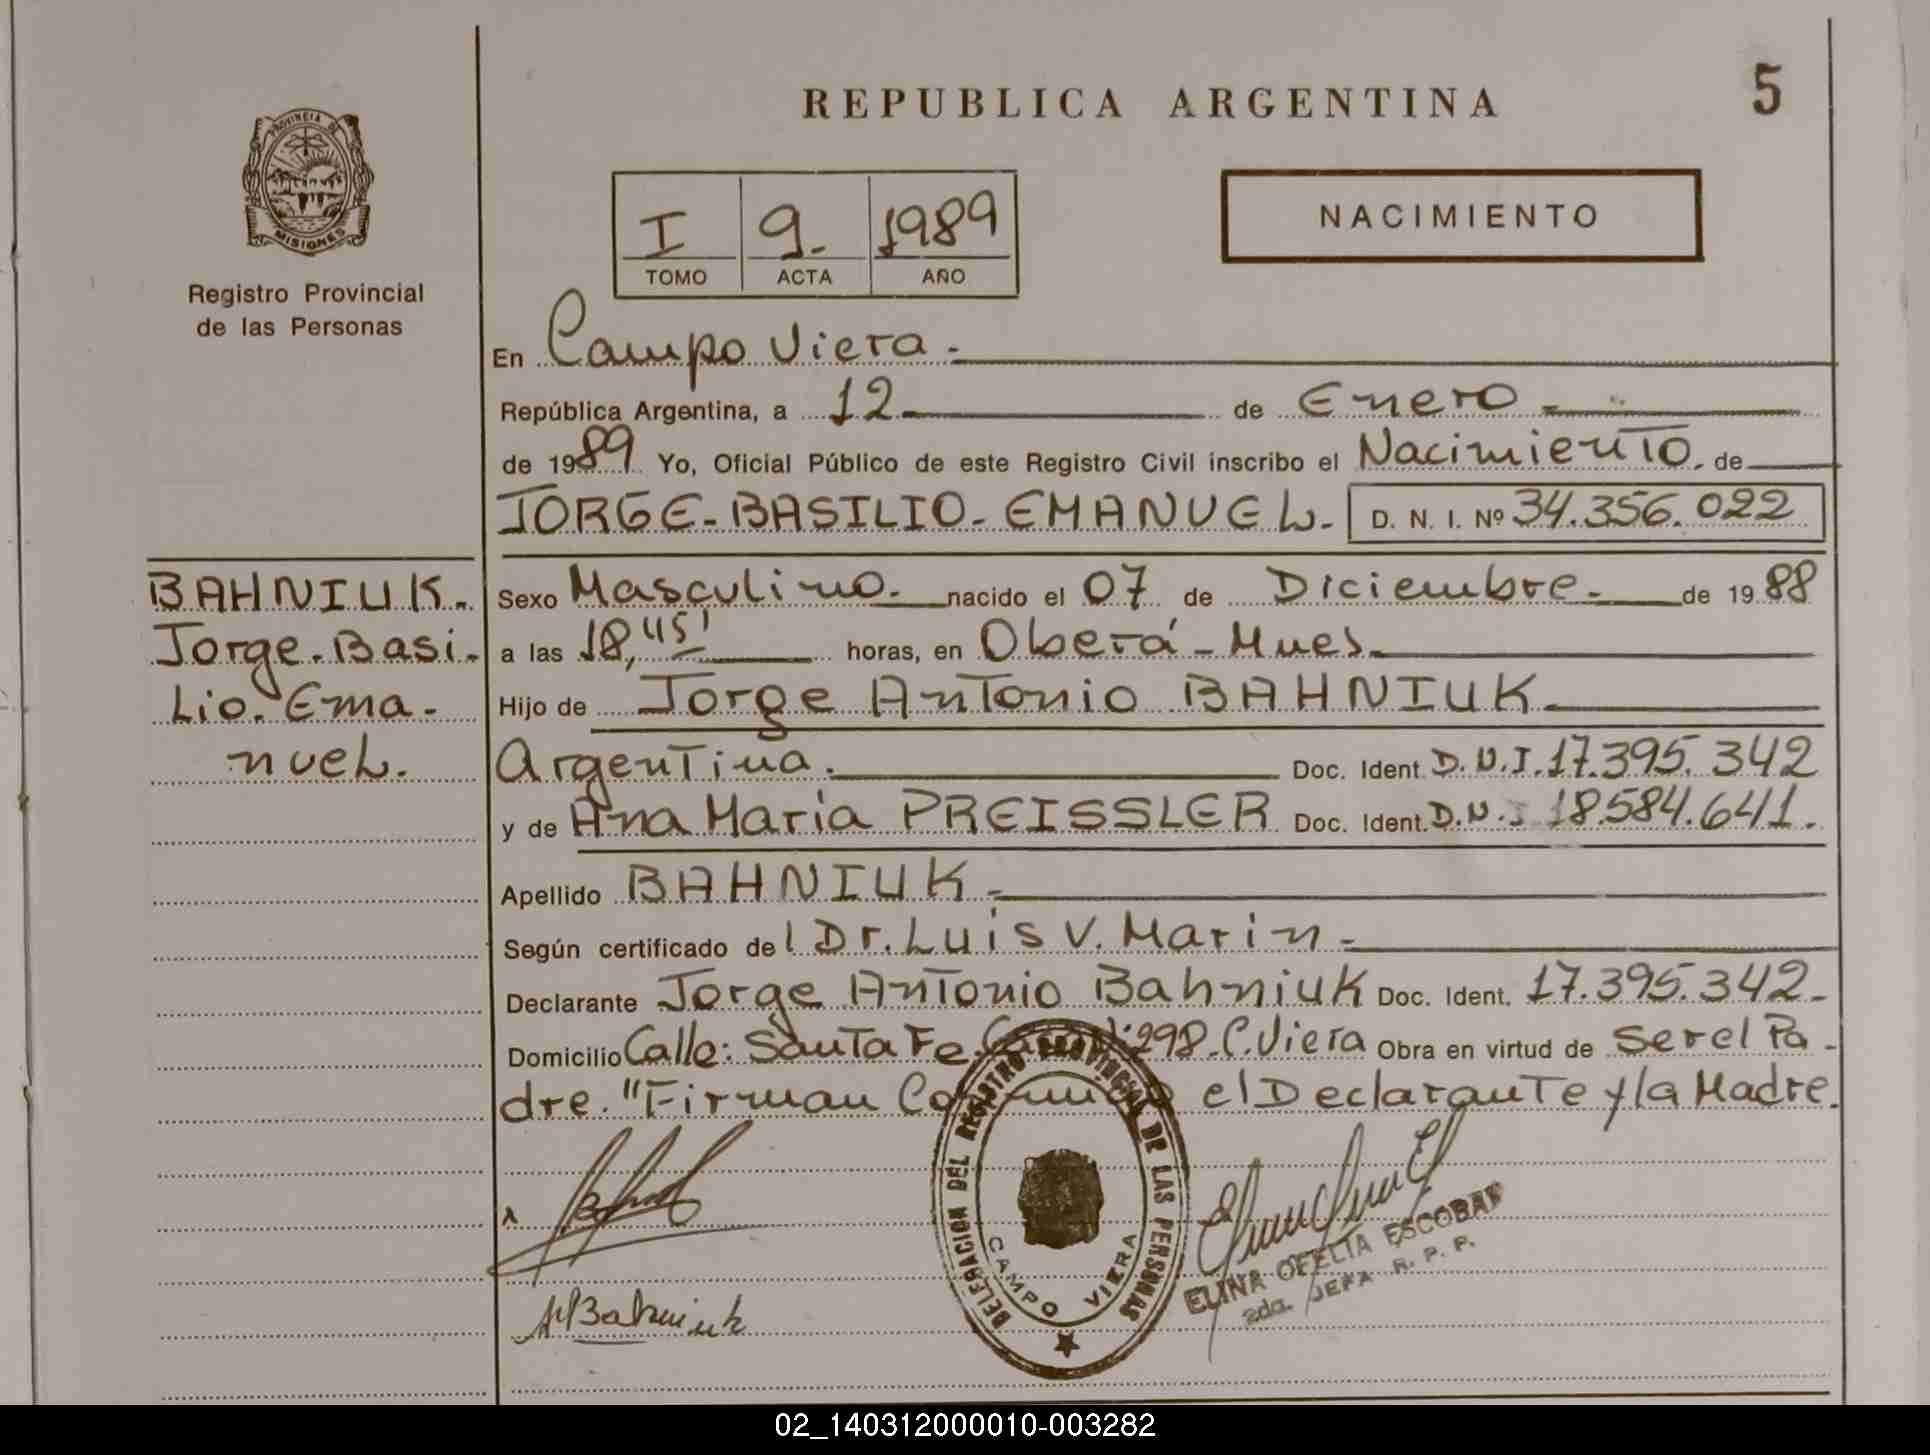 REPUBLICA ARGENTINA
5
PROVINCIA DE
MISIONES
Registro Provincial
de las Personas
I 9- 1989
TOMO ACTA AÑO
NACIMIENTO
En Campo Viera.-
República Argentina, a 12 de Enero-
de 1989 Yo, Oficial Público de este Registro Civil inscribo el Nacimiento. de
JORGE-BASILIO-EMANUEL- D. N. I. Nº 34.356.022
BAHNIUK.
Jorge-Basi-
Lio-Ema-
nuel.
Sexo Masculino. nacido el 07 de Diciembre.- de 1988
a las 18,45' horas, en Oberá-Mnes.
Hijo de Jorge Antonio BAHNIUK-
Argentina. Doc. Ident. D.N.I. 17.395.342
y de Ana María PREISSLER Doc. Ident. D.N.I 18.584.641.
Apellido BAHNIUK-
Según certificado del Dr. Luis V. Marin-
Declarante Jorge Antonio Bahniuk Doc. Ident. 17.395.342-
Domicilio Calle: Santa Fe 298-C.Viera Obra en virtud de Ser el Pa-
dre. "Firman el Declarante y la Madre.
DELEGACION DEL REGISTRO PROVINCIAL DE LAS PERSONAS
CAMPO VIERA
Bahniuk
ELINA OFELIA ESCOBAR
2da. JEFA R. P. P.
02_140312000010-003282